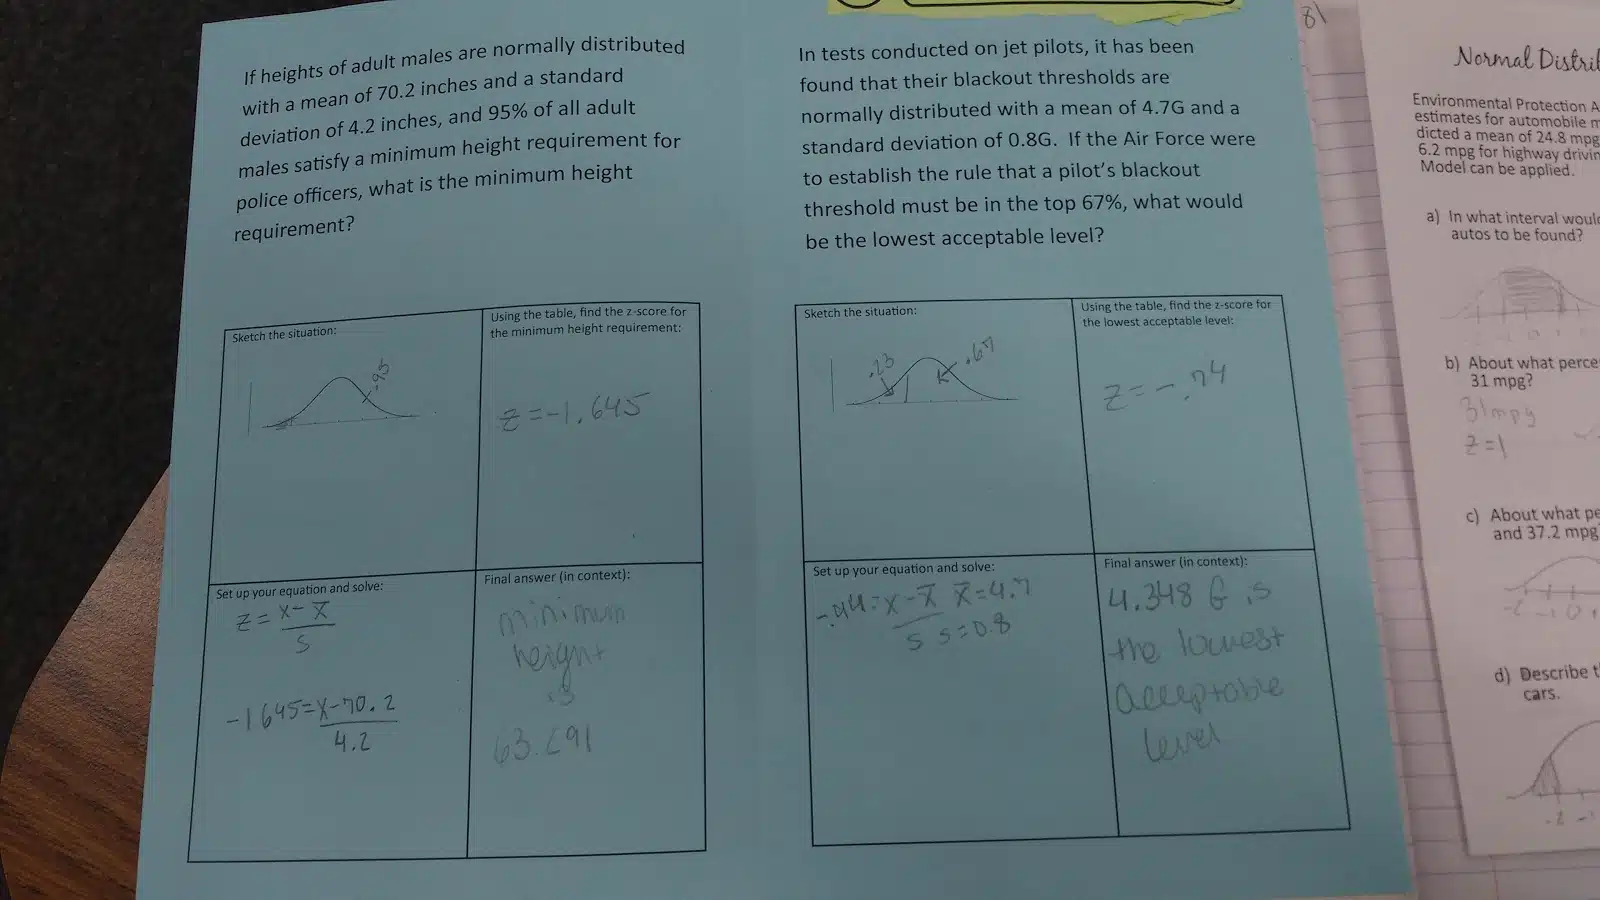 If heights of adult males are normally distributed
with a mean of 70.2 inches and a standard
deviation of 4.2 inches, and 95% of all adult
males satisfy a minimum height requirement for
police officers, what is the minimum height
requirement?
Sketch the situation:
.95
Using the table, find the z-score for
the minimum height requirement:
z=-1.645
Set up your equation and solve:
z = x- x̅
s
-1.645=x-70.2
4.2
Final answer (in context):
minimum
height
is
In tests conducted on jet pilots, it has been
found that their blackout thresholds are
normally distributed with a mean of 4.7G and a
standard deviation of 0.8G. If the Air Force were
to establish the rule that a pilot's blackout
threshold must be in the top 67%, what would
be the lowest acceptable level?
Sketch the situation:
.67
Using the table, find the z-score for
the lowest acceptable level:
Set up your equation and solve:
x-x̅ x̅=4.7
s s=0.8
Final answer (in context):
4.348 G is
the lowest
acceptable
level
81
Normal
Environmental Protection
estimates for automobile
dicted a mean of 24.8 mpg
6.2 mpg for highway
Model can be applied.
a) In what interval
autos to be found?
b) About what
31 mpg?
31mpg
z=1
c) About what
and 37.2 mpg
d) Describe
cars.